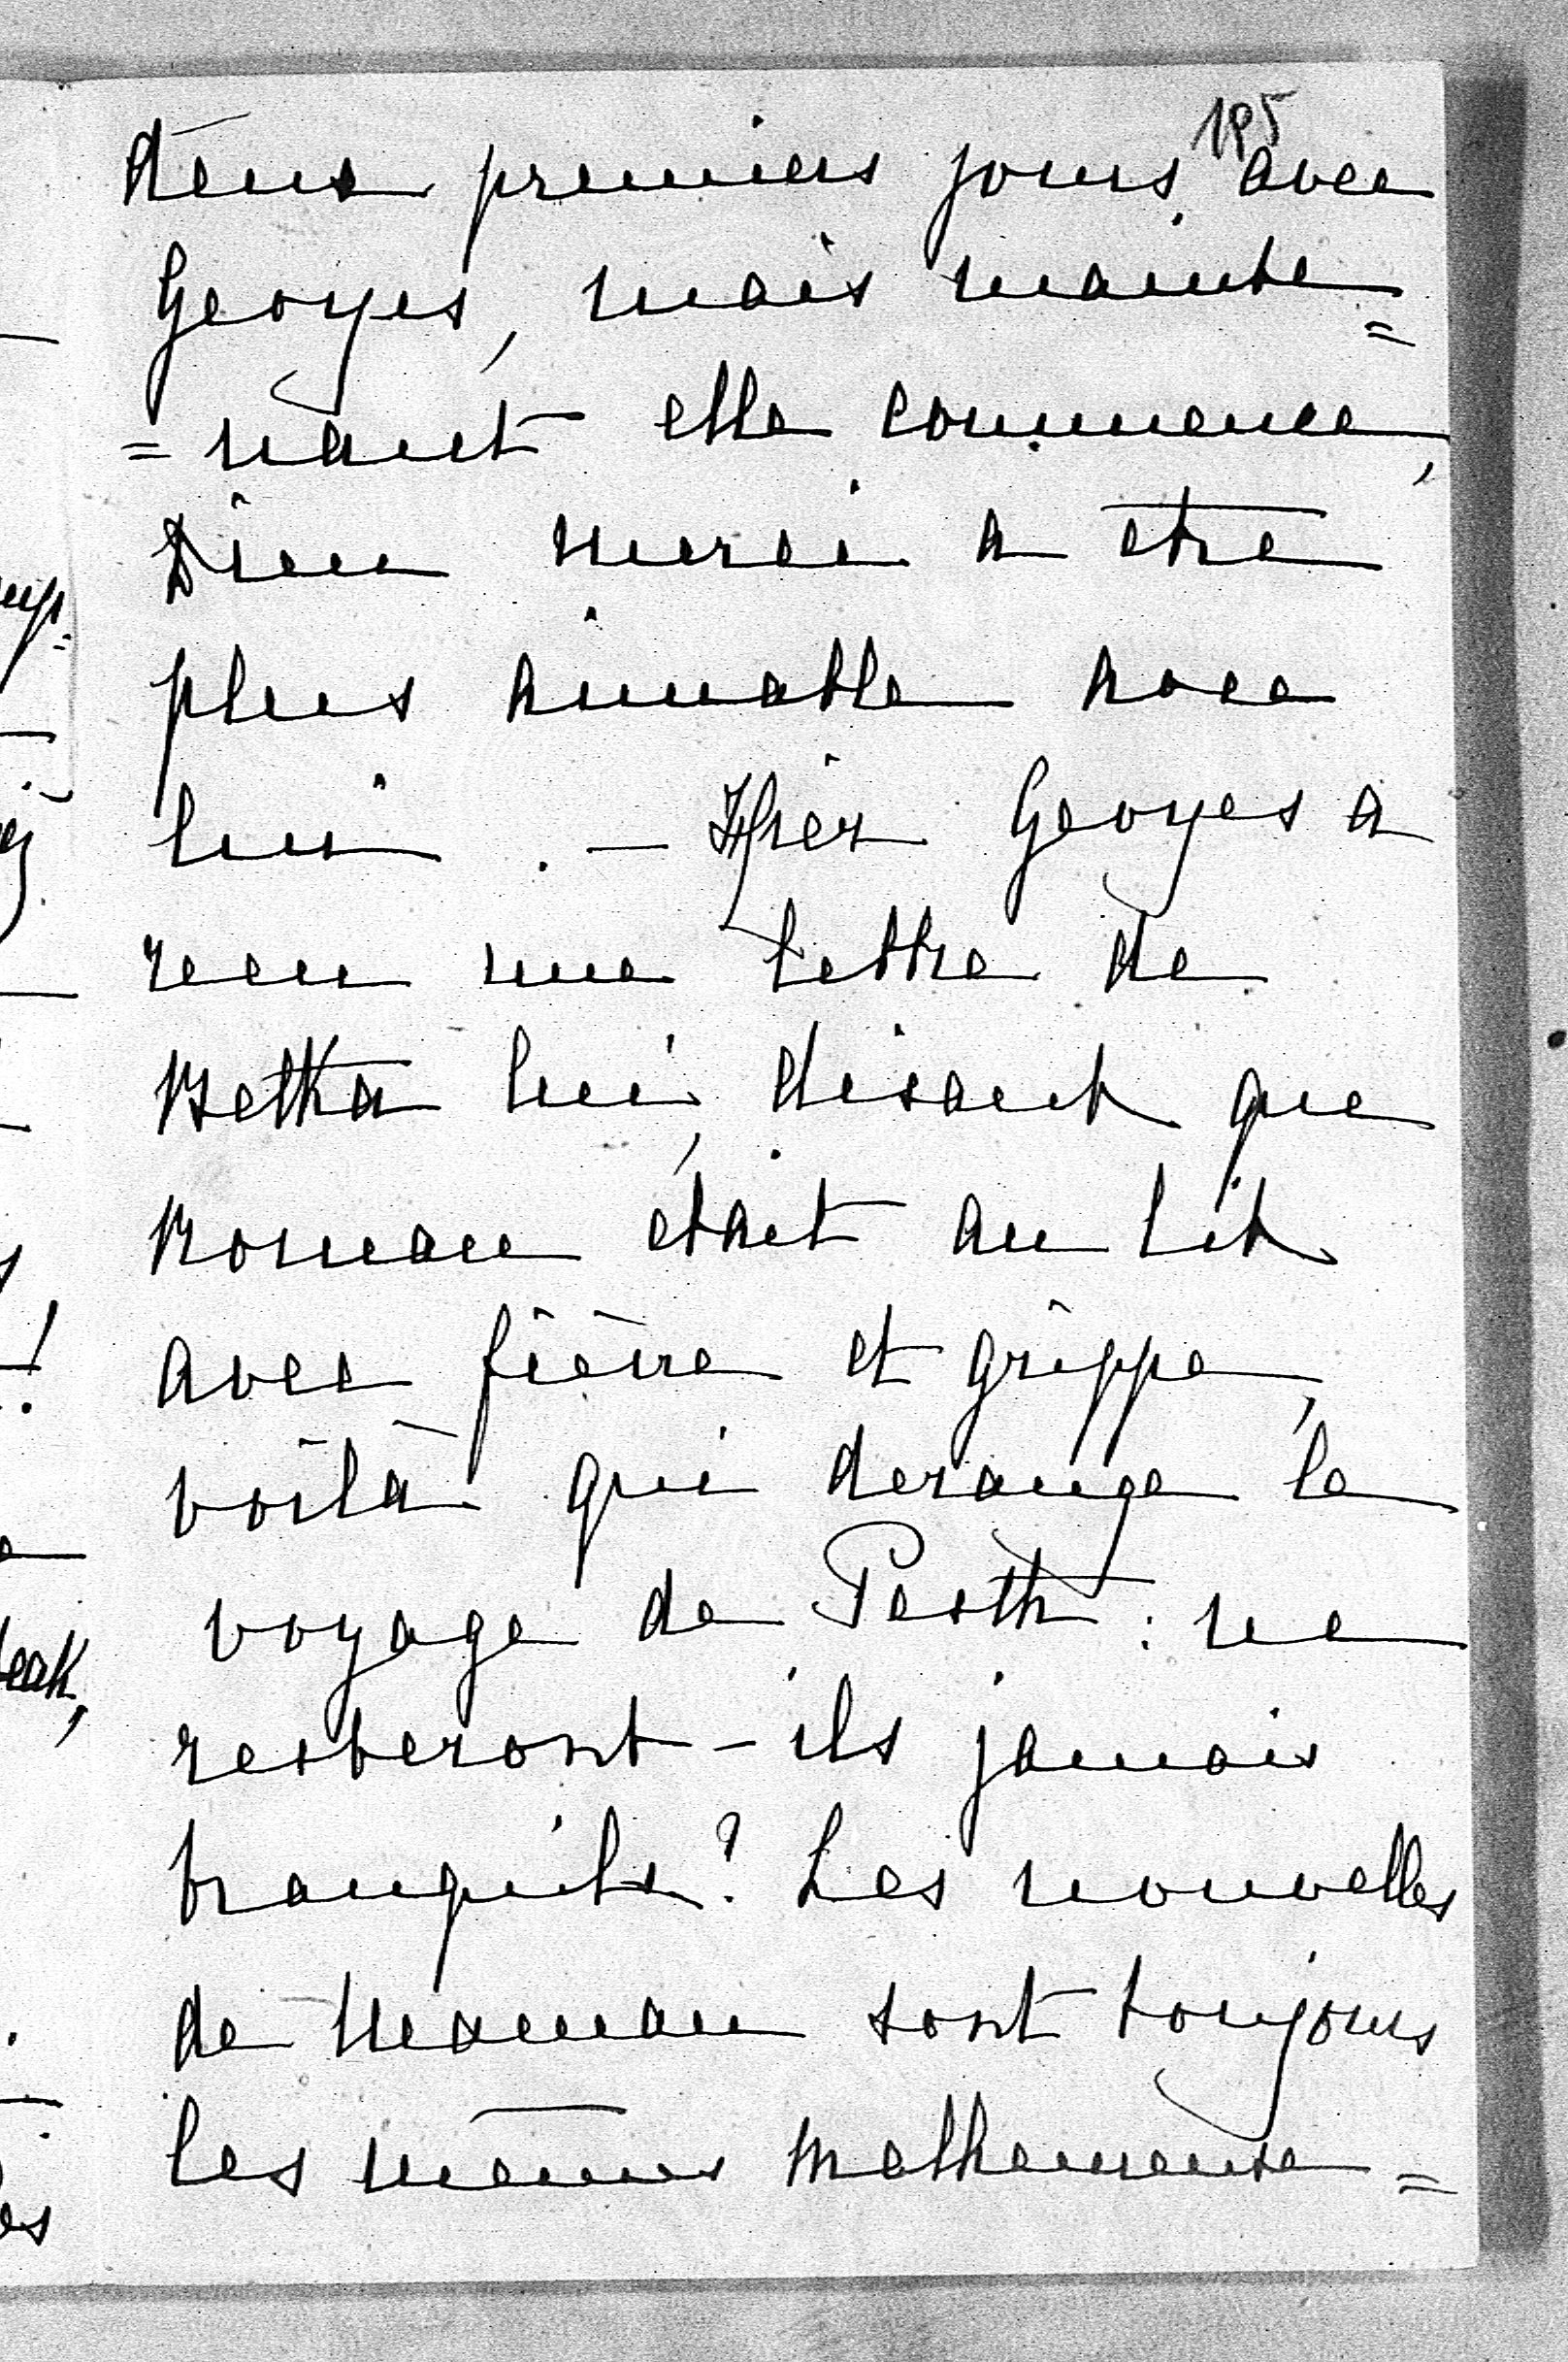 195
deux premiers jours avec
Georges, mais mainte=
=nant elle commence,
Dieu merci a être
plus aimable avec
lui. — Hier Georges a
recu une lettre de
Betka lui, disant que
Roman était au lit
avec fièvre et grippe,
voilà qui derange le
voyage de Pesth: ne
resteront-ils jamais
tranquils? Les nouvelles
de Maman sont toujours
les mêmes malheureuse=